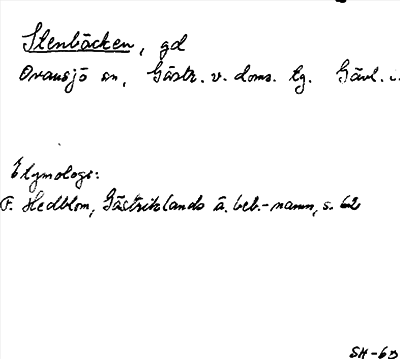 Stenbäcken, gd
Ovansjö sn, Gästr. v. doms. tg. Gävl.
Etymologi:
F. Hedblom, Gästriklands ä. beb.-namn, s. 62
SH-63